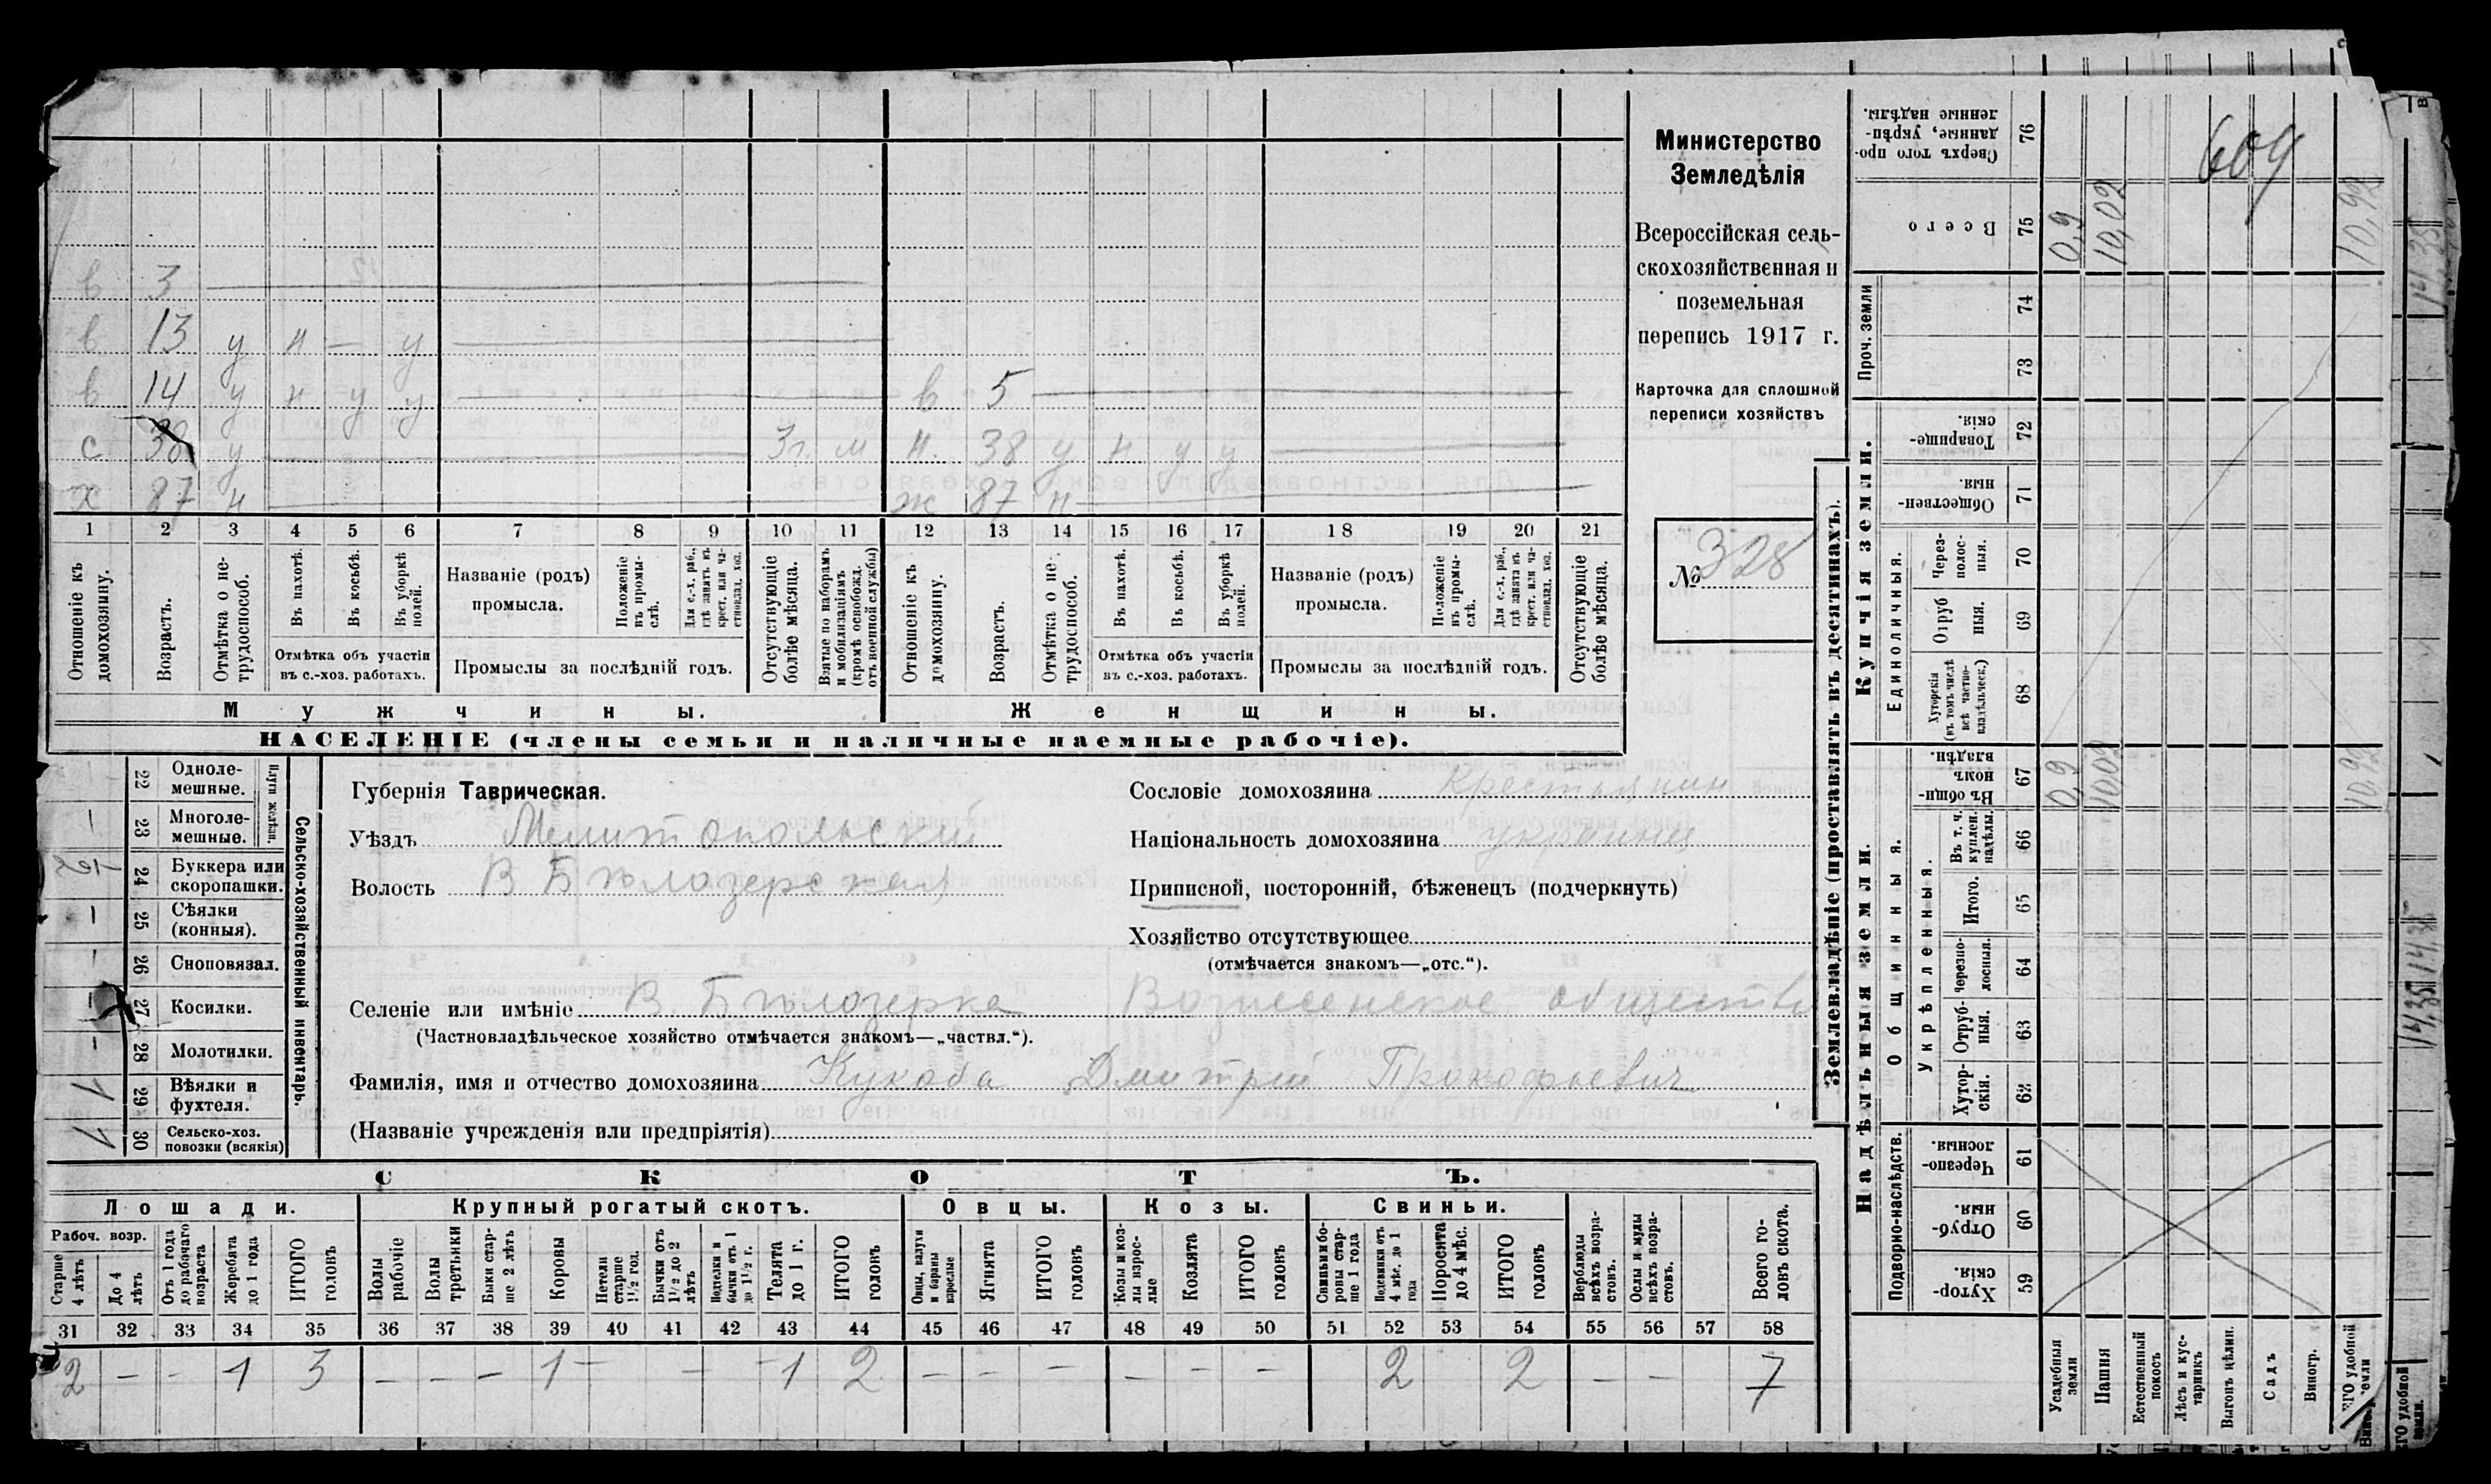 Министерство
Земледѣлія
Всероссійская сель-
скохозяйственная и
поземельная
перепись 1917 г.
Карточка для сплошной
переписи хозяйствъ
№ 328
в 3
в 13 у н — у
в 14 у н у у
в 5
с 38 у 3 г. м
н. 38 у н у у
х 87 н
ж 87 н
1 2 3 4 5 6 7 8 9 10 11 12 13 14 15 16 17 18 19 20 21
Отношеніе къ домохозяину.
Возрастъ.
Отмѣтка о не-трудоспособ.
Въ пахотѣ.
Въ косьбѣ.
Въ уборкѣ полей.
Отмѣтка объ участіи въ с.-хоз. работахъ.
Названіе (родъ) промысла.
Положеніе въ промы-слѣ.
Для с.-х. раб., гдѣ занятъ въ крест. или ча-стновлад. хоз.
Промыслы за послѣдній годъ.
Отсутствующіе болѣе мѣсяца.
Взятые по наборамъ и мобилизаціямъ (кромѣ освобожд. отъ военной службы)
Отношеніе къ домохозяину.
Возрастъ.
Отмѣтка о не-трудоспособ.
Въ пахотѣ.
Въ косьбѣ.
Въ уборкѣ полей.
Отмѣтка объ участіи въ с.-хоз. работахъ.
Названіе (родъ) промысла.
Положеніе въ промы-слѣ.
Для с.-х. раб., гдѣ занята въ крест. или ча-стновлад. хоз.
Промыслы за послѣдній годъ.
Отсутствующіе болѣе мѣсяца.
Мужчины. Женщины.
НАСЕЛЕНІЕ (члены семьи и наличные наемные рабочіе).
Сельско-хозяйственный инвентарь.
22 Однолемешные.
23 Многолемешные. —
24 Буккера или скоропашки.
25 Сѣялки (конныя). —
26 Сноповязал. —
27 Косилки. —
28 Молотилки. —
29 Вѣялки и фухтеля. 1
30 Сельско-хоз. повозки (всякія) 1
Губернія Таврическая.
Уѣздъ Мелитопольский
Волость В Бѣлозерская
Сословіе домохозяина крестьянин
Національность домохозяина украинец
Приписной, посторонній, бѣженецъ (подчеркнуть)
Хозяйство отсутствующее
(отмѣчается знакомъ—„отс.“).
Селеніе или имѣніе В. Бѣлозерка Вознесенское общество
(Частновладѣльческое хозяйство отмѣчается знакомъ—„частвл.“).
Фамилія, имя и отчество домохозяина Кукоба Дмитрий Прокофьевич
(Названіе учрежденія или предпріятія)
СКОТЪ.
Лошади. Крупный рогатый скотъ. Овцы. Козы. Свиньи.
Рабоч. возр.
Старше 4 лѣтъ
До 4 лѣтъ
Отъ 1 года до рабочаго возраста
Жеребята до 1 года
ИТОГО головъ
Волы рабочіе
Волы третьяки
Быки стар-ше 2 лѣтъ
Коровы
Нетели старше 1½ год.
Бычки отъ 1½ до 2 лѣтъ
Подтелки и бычки отъ 1 до 1½ г.
Телята до 1 г.
ИТОГО головъ
Овцы, валухи и бараны взрослые
Ягнята
ИТОГО головъ
Козы и коз-лы взрос-лые
Козлята
ИТОГО головъ
Свиньи и бо-ровы стар-ше 1 года
Подсвинки отъ 4 мѣс. до 1 года
Поросята до 4 мѣс.
ИТОГО головъ
Верблюды всѣхъ возра-стовъ.
Ослы и мулы всѣхъ возра-стовъ.
Всего го-ловъ скота.
31 32 33 34 35 36 37 38 39 40 41 42 43 44 45 46 47 48 49 50 51 52 53 54 55 56 57 58
2 — — 1 3 — — — 1 — — — 1 2 — — — — — — 2 2 — — 7
Землевладѣніе (проставлять въ десятинахъ).
Надѣльныя земли. Купчія земли.
Подворно-наслѣдств.
59 Хутор-скія.
60 Отруб-ныя.
61 Черезпо-лосныя.
Общинныя.
Укрѣпленныя.
62 Хутор-скія.
63 Отруб-ныя.
64 Черезпо-лосныя.
65 Итого.
66 Въ т. ч. куплен. надѣлы.
67 Въ общи-номъ владѣн. 0,9 10,02 10,92
Единоличныя.
68 Хуторскія (въ томъ числѣ всѣ частно-владѣльческ.)
69 Отруб-ныя.
70 Через-полос-ныя.
71 Обществен-ныя.
72 Товарище-скія.
Проч. земли
73
74
75 Всего 0,9 10,02 10,92
76 Сверхъ того про-данные, укрѣп-ленные надѣлы.
609
Усадебныя земли
Пашня
Естественный покосъ
Лѣсъ и кус-тарникъ
Выгонъ цѣлин.
Садъ
Виногр.
ЕГО удобной земли